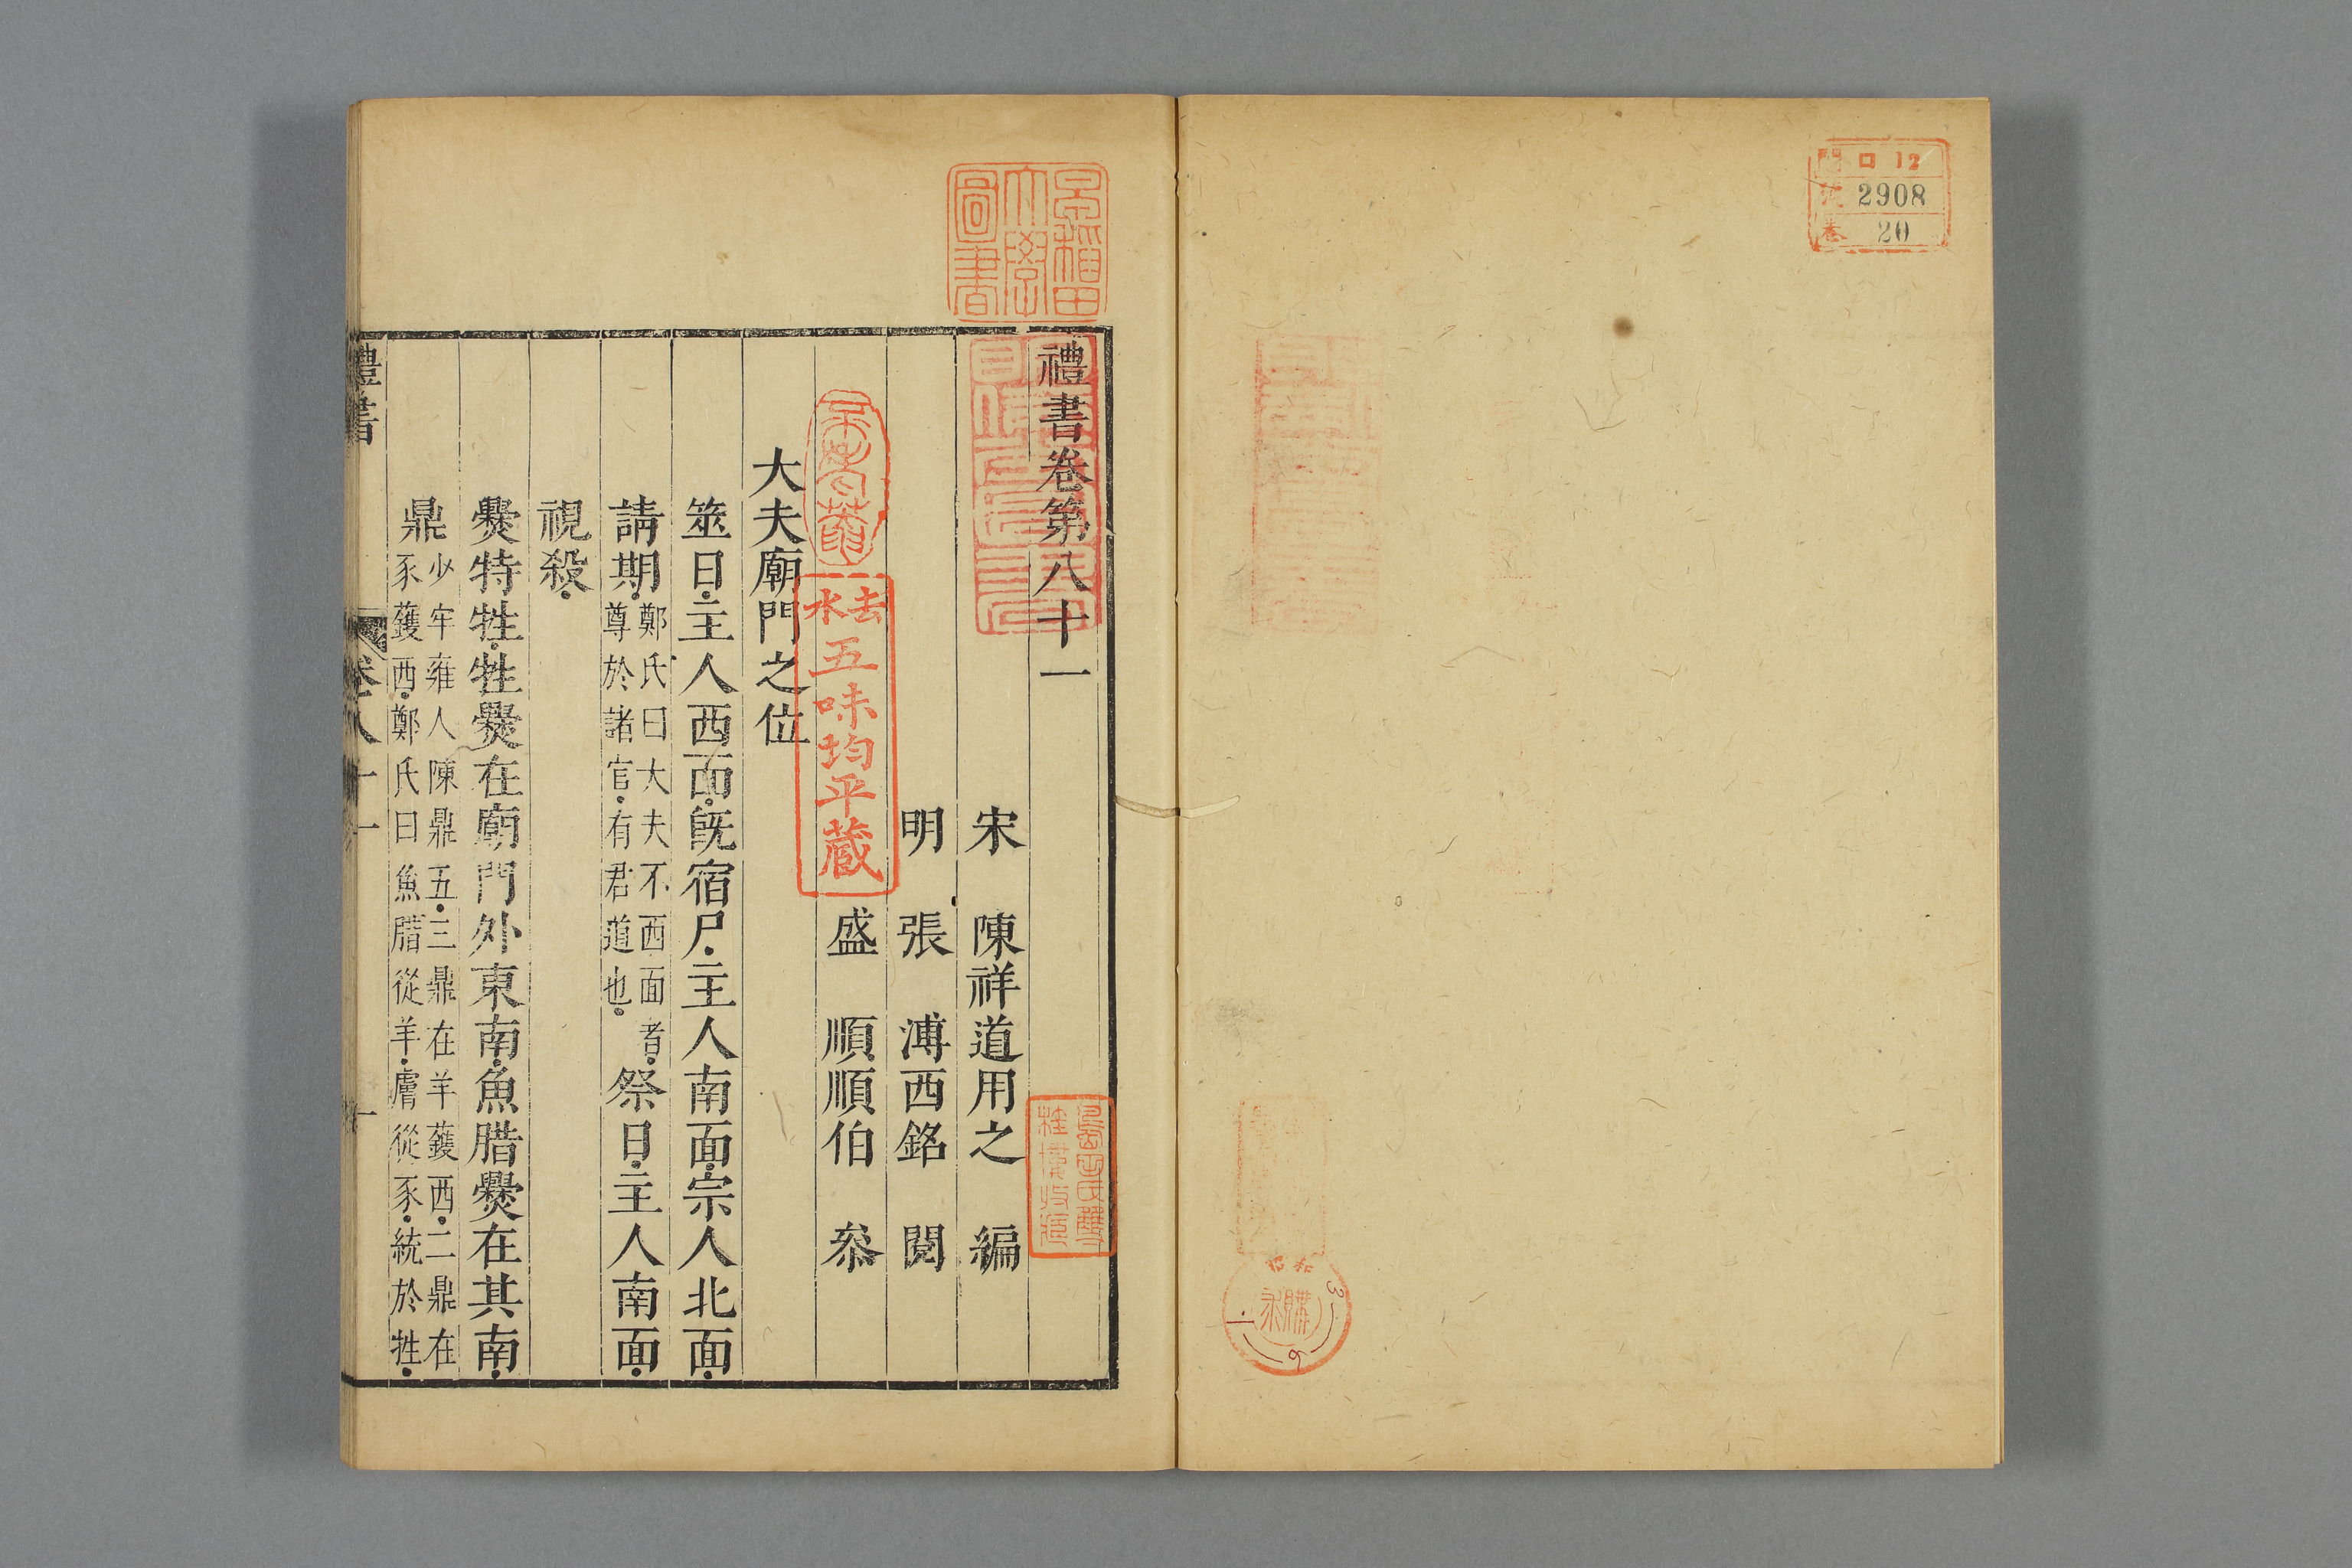 口 12
2908
卷 20
昭和
購求
3
6
早稲田
大學
圖書
禮書卷第八十一
宋 陳祥道用之 編
明 張 溥西銘 閱
盛 順順伯 叅
去水
五味均平蔵
大夫廟門之位
筮日主人西面旣宿尸主人南面宗人北面
請期鄭氏曰大夫不西面者
尊於諸官有君道也祭日主人南面
視殺
爨特牲牲爨在廟門外東南魚腊爨在其南
鼎少牢雍人陳鼎五三鼎在羊鑊西二鼎在
豕鑊西鄭氏曰魚腊從羊膚從豕統於牲
禮書
卷八十一
一